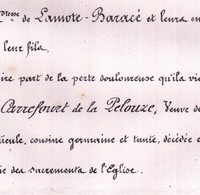 presse de Lamote-Baracé et leurs en
leur fils.
ire part de la perte douloureuse qu'ils vie
Carrefourt de la Pelouze, Veuve de
ieule, cousine germaine et tante, décédée d
ie des sacrements de l'Eglise.